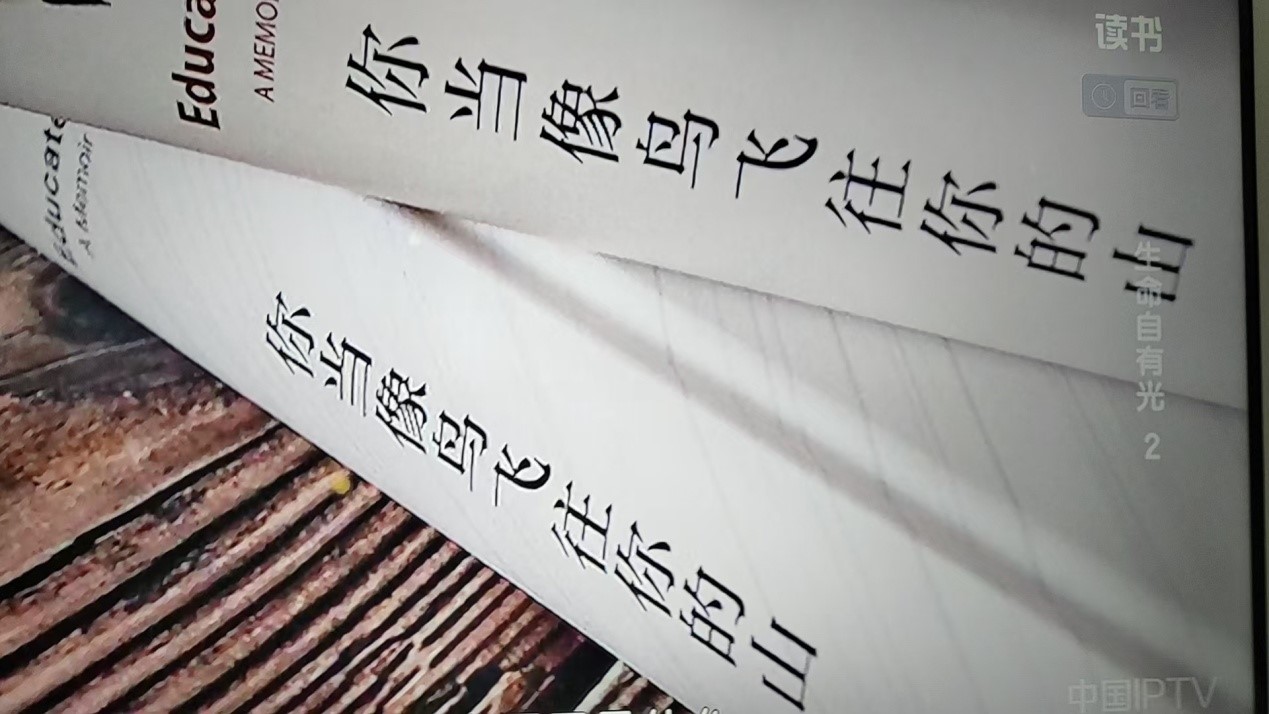 读书
回看
Educa
A MEMO
你当像鸟飞往你的山
Educate
A Memoir
你当像鸟飞往你的山
生命自有光 2
中国IPTV